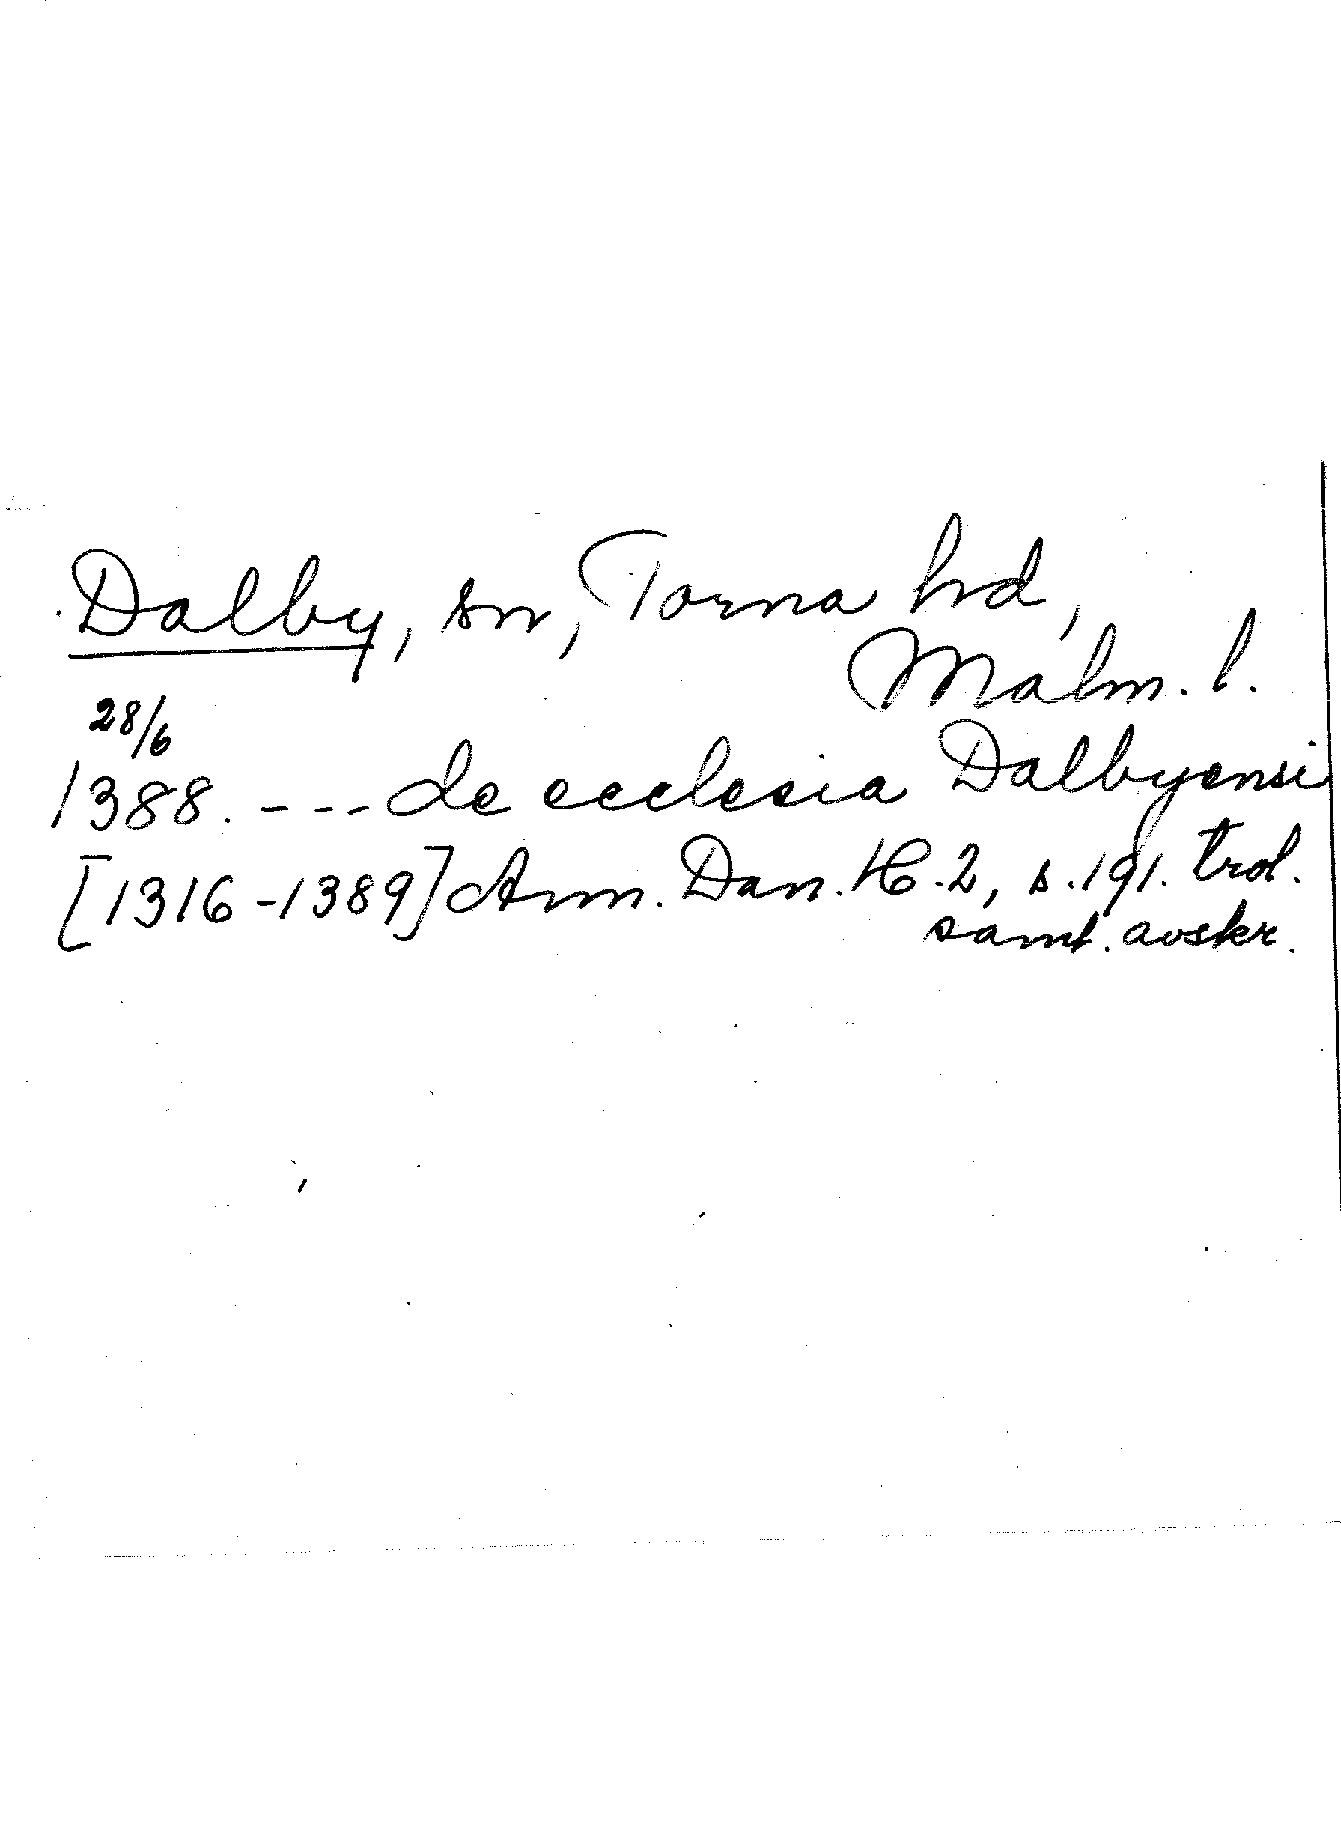 Dalby, sn, Torna hd,
Malm. l.
28/6
1388. --- de ecclesia Dalbyensi
[1316-1389] Ann. Dan. H. 2, s. 191. trol.
samt. avskr.